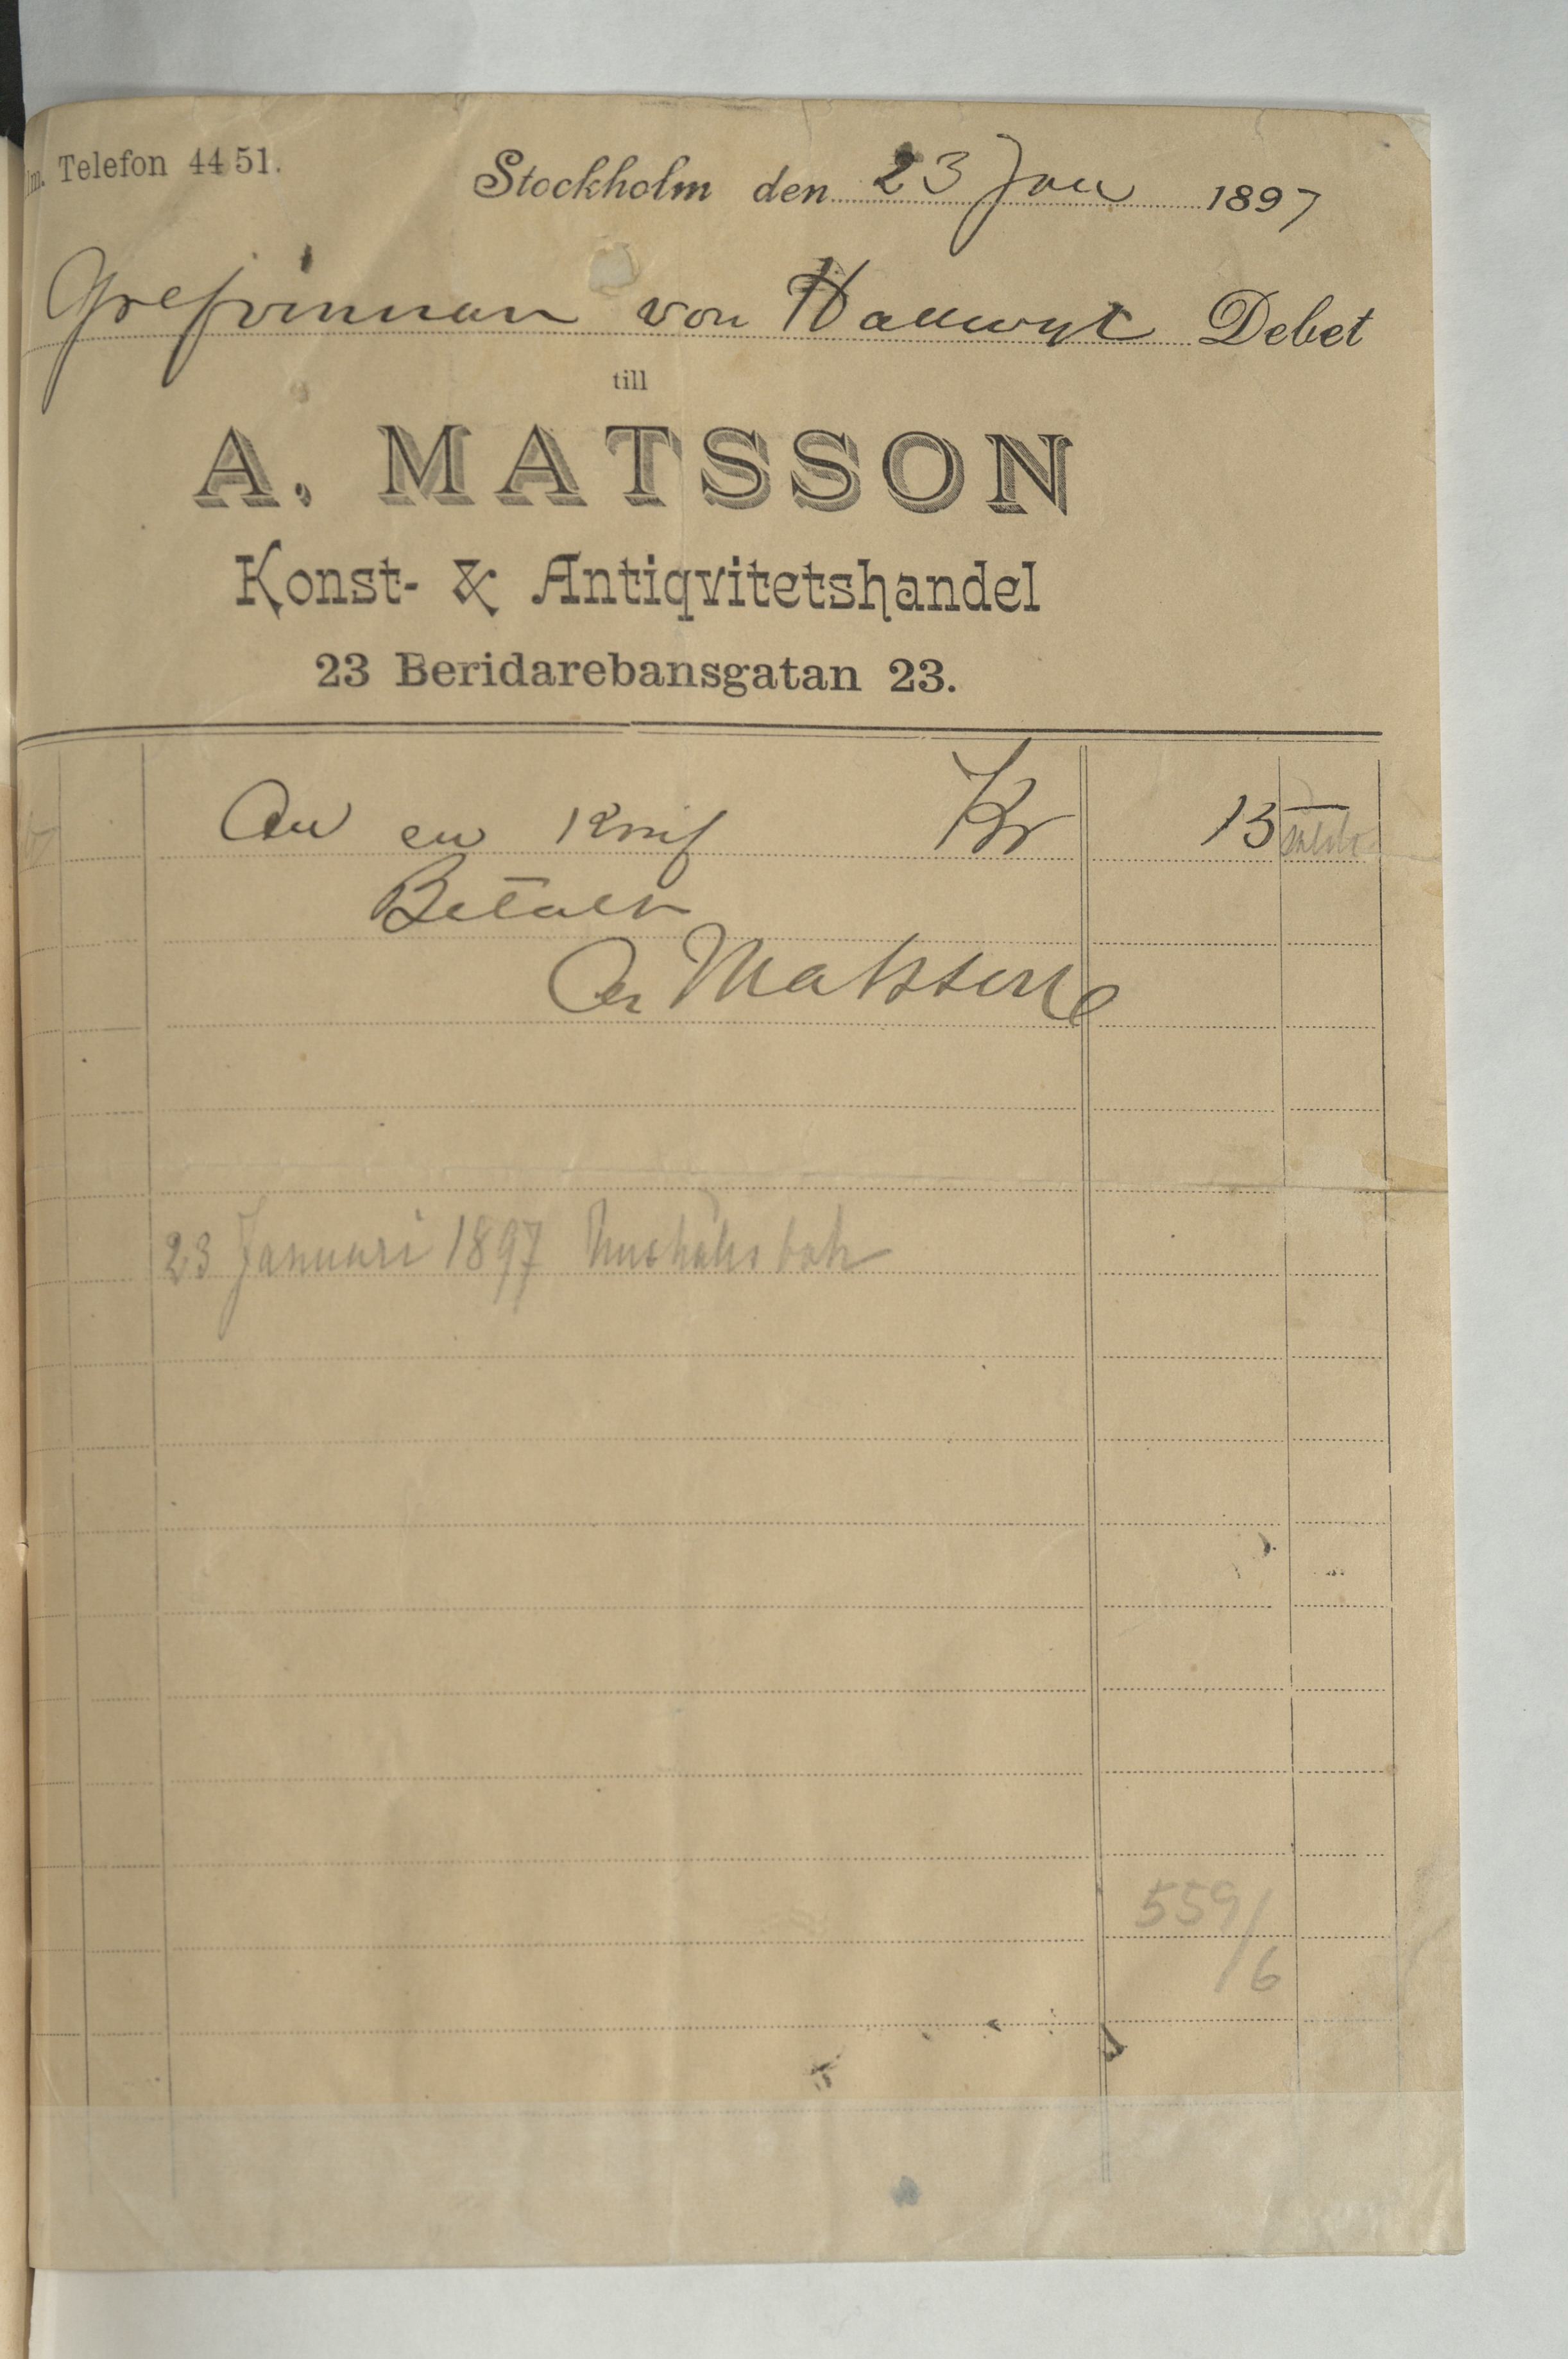 Telefon 4451.
Stockholm den 23 Jan 1897
Grefvinnan von Hallwyl Debet
till
A. MATSSON
Konst- & Antiqvitetshandel
23 Beridarebansgatan 23.
An en Knif Kr 13 —
Betalt
A Matsson
23 Januari 1897 Hushålls bok
559/6